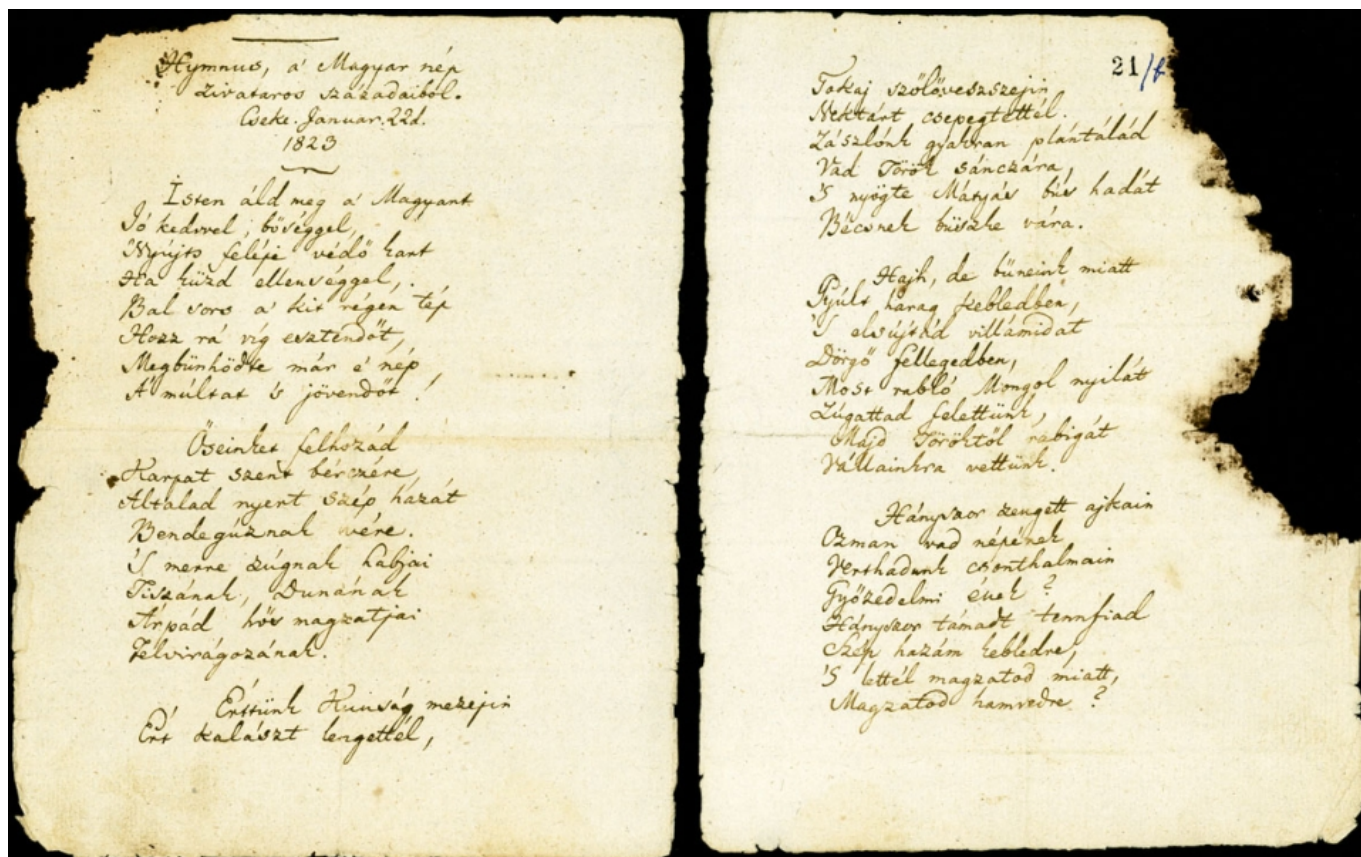 Hymnus, a' Magyar nép
zivataros századaiból.
Cseke. Januar. 22d.
1823
Isten áld meg a' Magyart
Jó kedvvel, bőséggel,
Nyújts feléje védő kart
Ha küzd ellenséggel,
Bal sors a' kit régen tép
Hozz rá víg esztendőt,
Megbünhödte már e' nép
A' múltat 's jövendőt!
Őseinket felhozád
Kárpat szent bérczére,
Általad nyert szép hazát
Bendegúznak vére.
'S merre zúgnak habjai
Tiszának, Dunának
Árpád hős magzatjai
Felvirágozának.
Értünk Kunság mezejin
Ért kalászt lengettél,
21/b
Tokaj szőlőveszszejin
Nektárt csepegtettél.
Zászlónk gyakran plántálád
Vad Török sánczára,
'S nyögte Mátyás bús hadát
Bécsnek büszke vára.
Hajh, de bűneink miatt
Gyúlt harag kebledben,
'S elsújtád villámidat
Dörgő fellegedben,
Most rabló Mongol nyilát
Zúgattad felettünk,
Majd Töröktől rabigát
Vállainkra vettünk.
Hányszor zengett ajkain
Ozman vad népének
Vert hadunk csonthalmain
Győzedelmi ének?
Hányszor támadt tennfiad
Szép hazám kebledre,
'S lettél magzatod miatt,
Magzatod hamvedre?